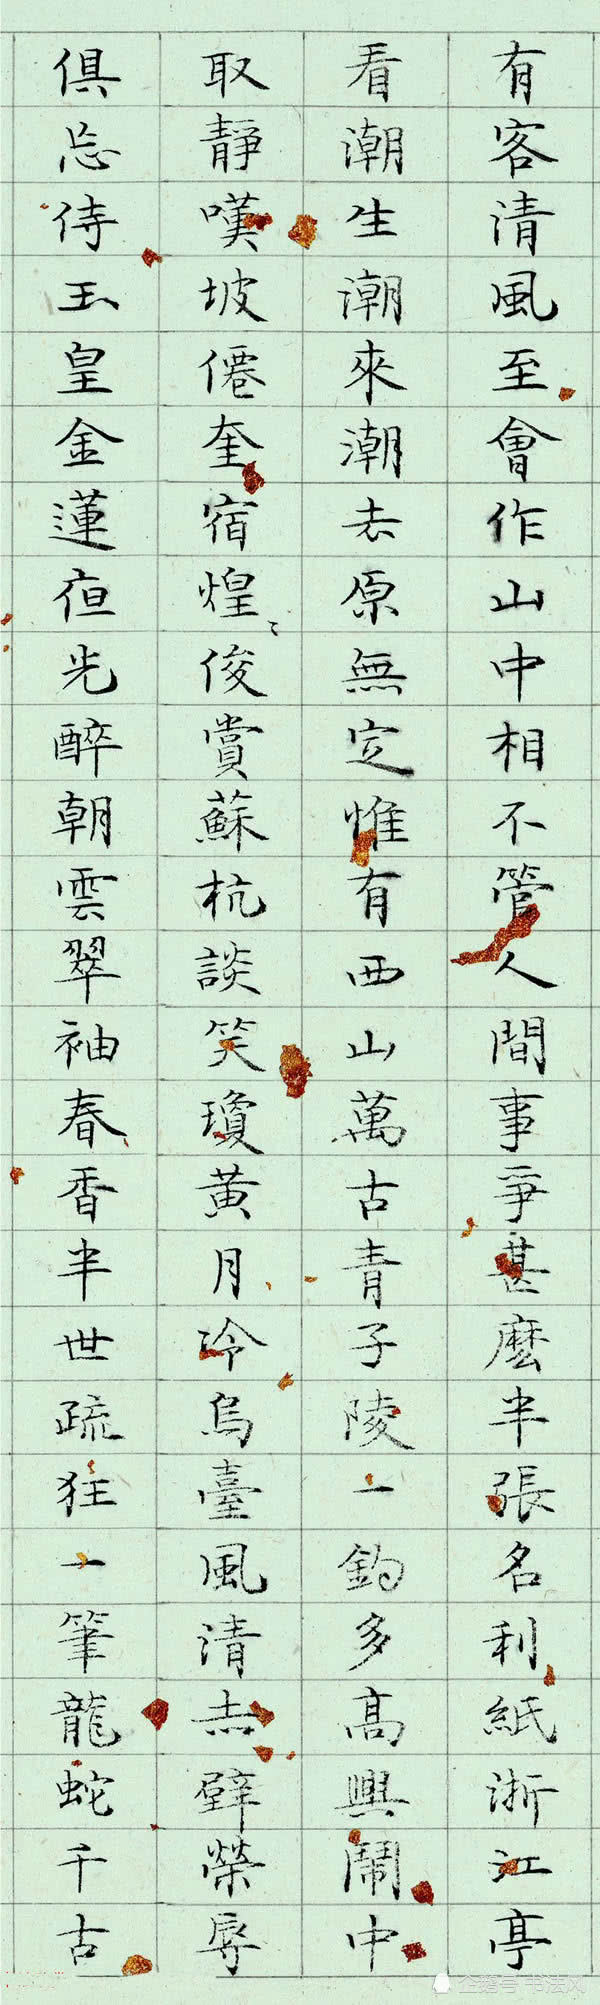 有客清風至會作山中相不管人間事爭甚麼半張名利紙浙江亭
看潮生潮來潮去原無定惟有西山萬古青子陵一釣多高興鬧中
取靜嘆坡僊奎宿煌俊賞蘇杭談笑瓊黃月冷烏臺風清赤壁榮辱
俱忘侍玉皇金蓮夜光醉朝雲翠袖春香半世疏狂一筆龍蛇千古
企鹅号 书法风